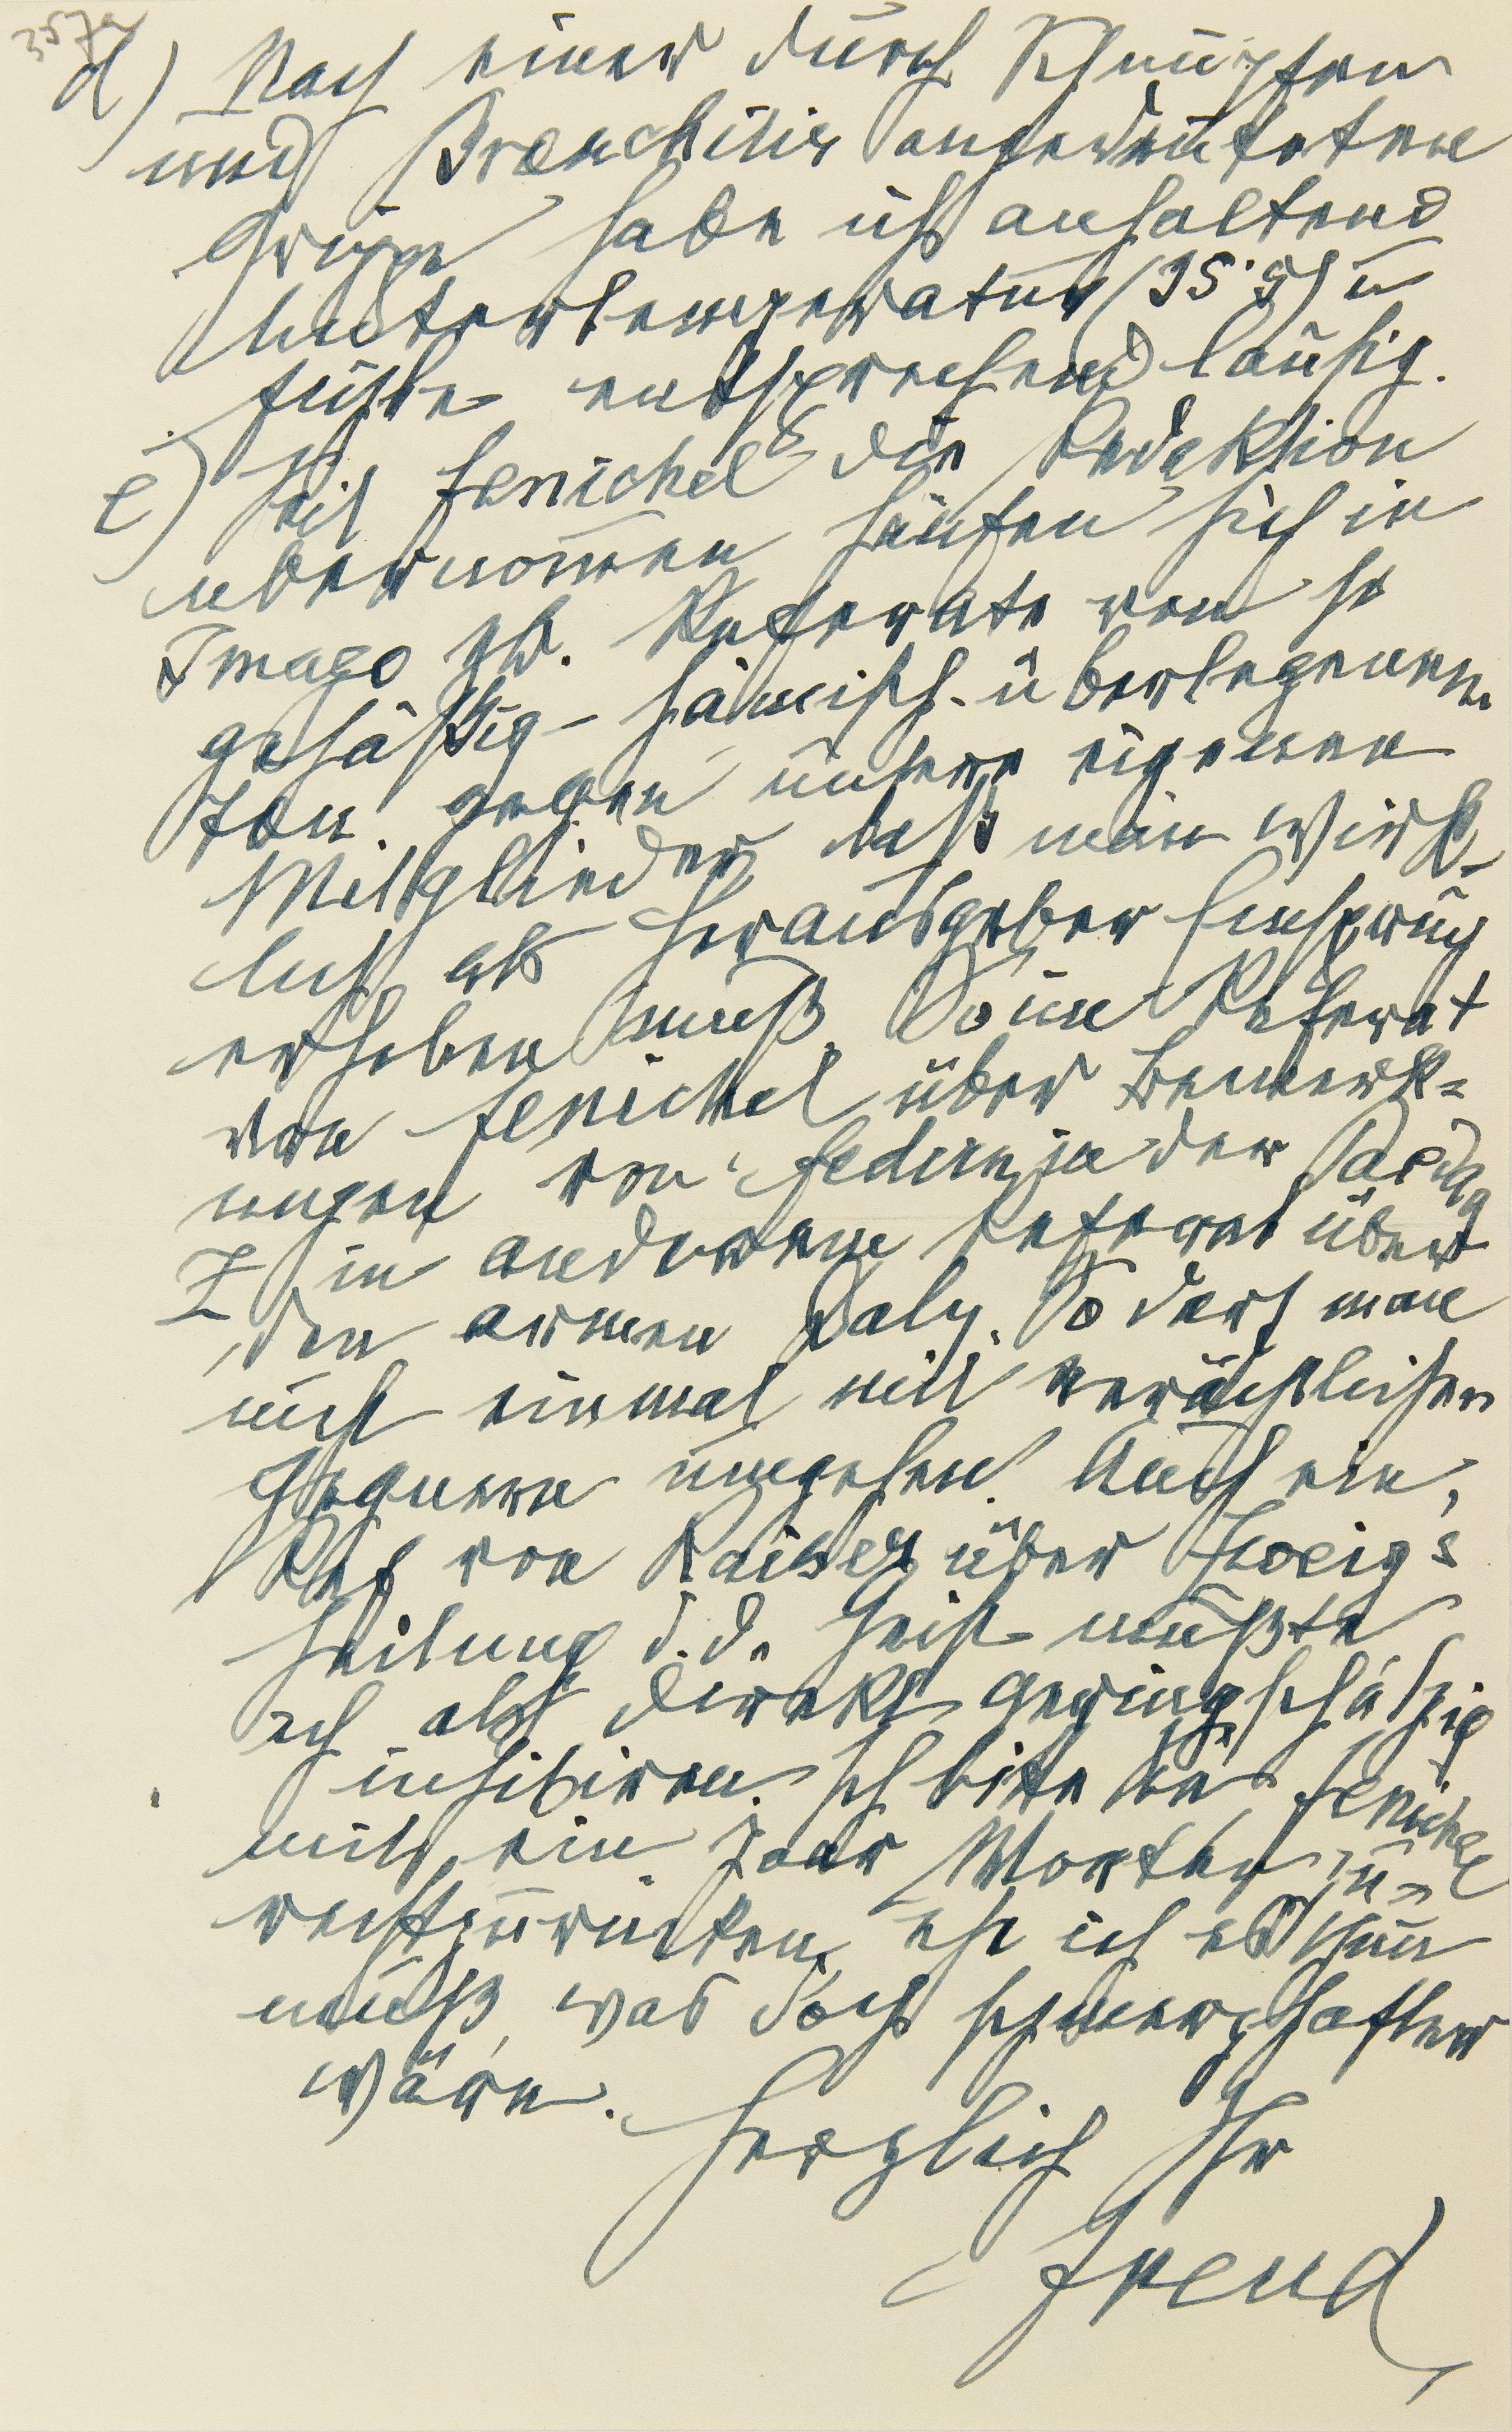 357a
d) Nach einer durch Schnupfen
und Bronchitis angedeuteten
Grippe habe ich anhaltend
Untertemperatur (35·5) u
fühle entsprechend lausig.
e) Seit Fenichel die Redaktion
übernom̄en häufen sich in
Imago ZW. Referate von so
gehäßig-hämisch-überlegenem
Ton gegen unsere eigenen
Mitglieder, daß man wirk-
lich als Herausgeber Einspruch
erheben muß. So im Referat
von Fenichel über Bemerk=
ungen von Federn in der Pädag
Z in anderem Referat über
den armen Daly. So darf man
nicht einmal mit verächtlichen
Gegnern umgehen. Auch ein
Ref von Kaiser über Zweig's
Heilung d. d. Geist mußte
ich als direkt geringschätzig
inhibiren. Ich bitte Sie Fenichel
mit ein Paar Worten zu-
rechtzurücken, ehe ich es thun
muß, was doch schmerzhafter
wäre.
Herzlich Ihr
Freud